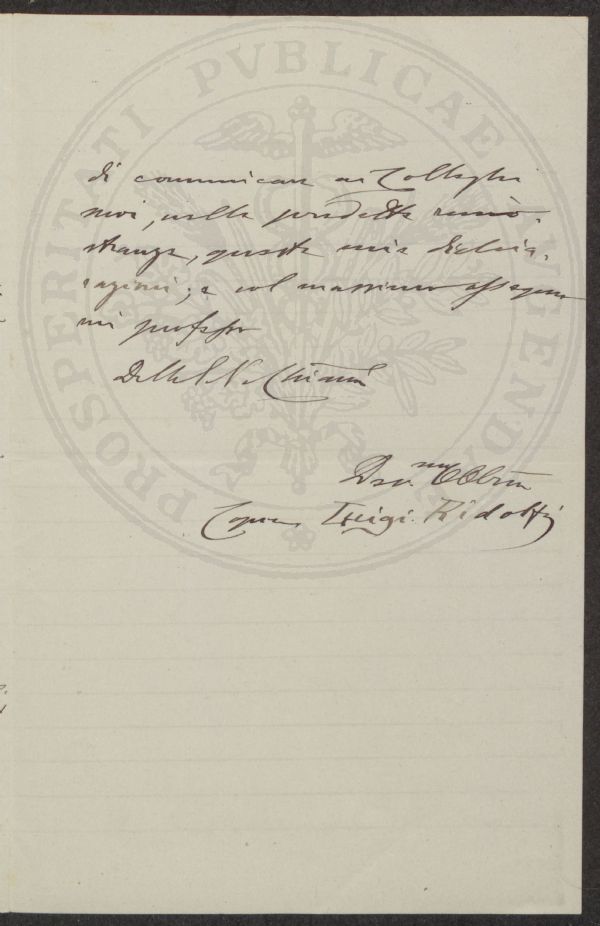 PROSPERITATI PVBLICAE AVGENDAE
di comunicare ai Colleghi
miei, nella predetta
questa mia dichia-
razioni; e col massimo ossequio
mi professo
Della S. V. Chiarma
Dev.mo Obbmo
Luigi Ridolfi